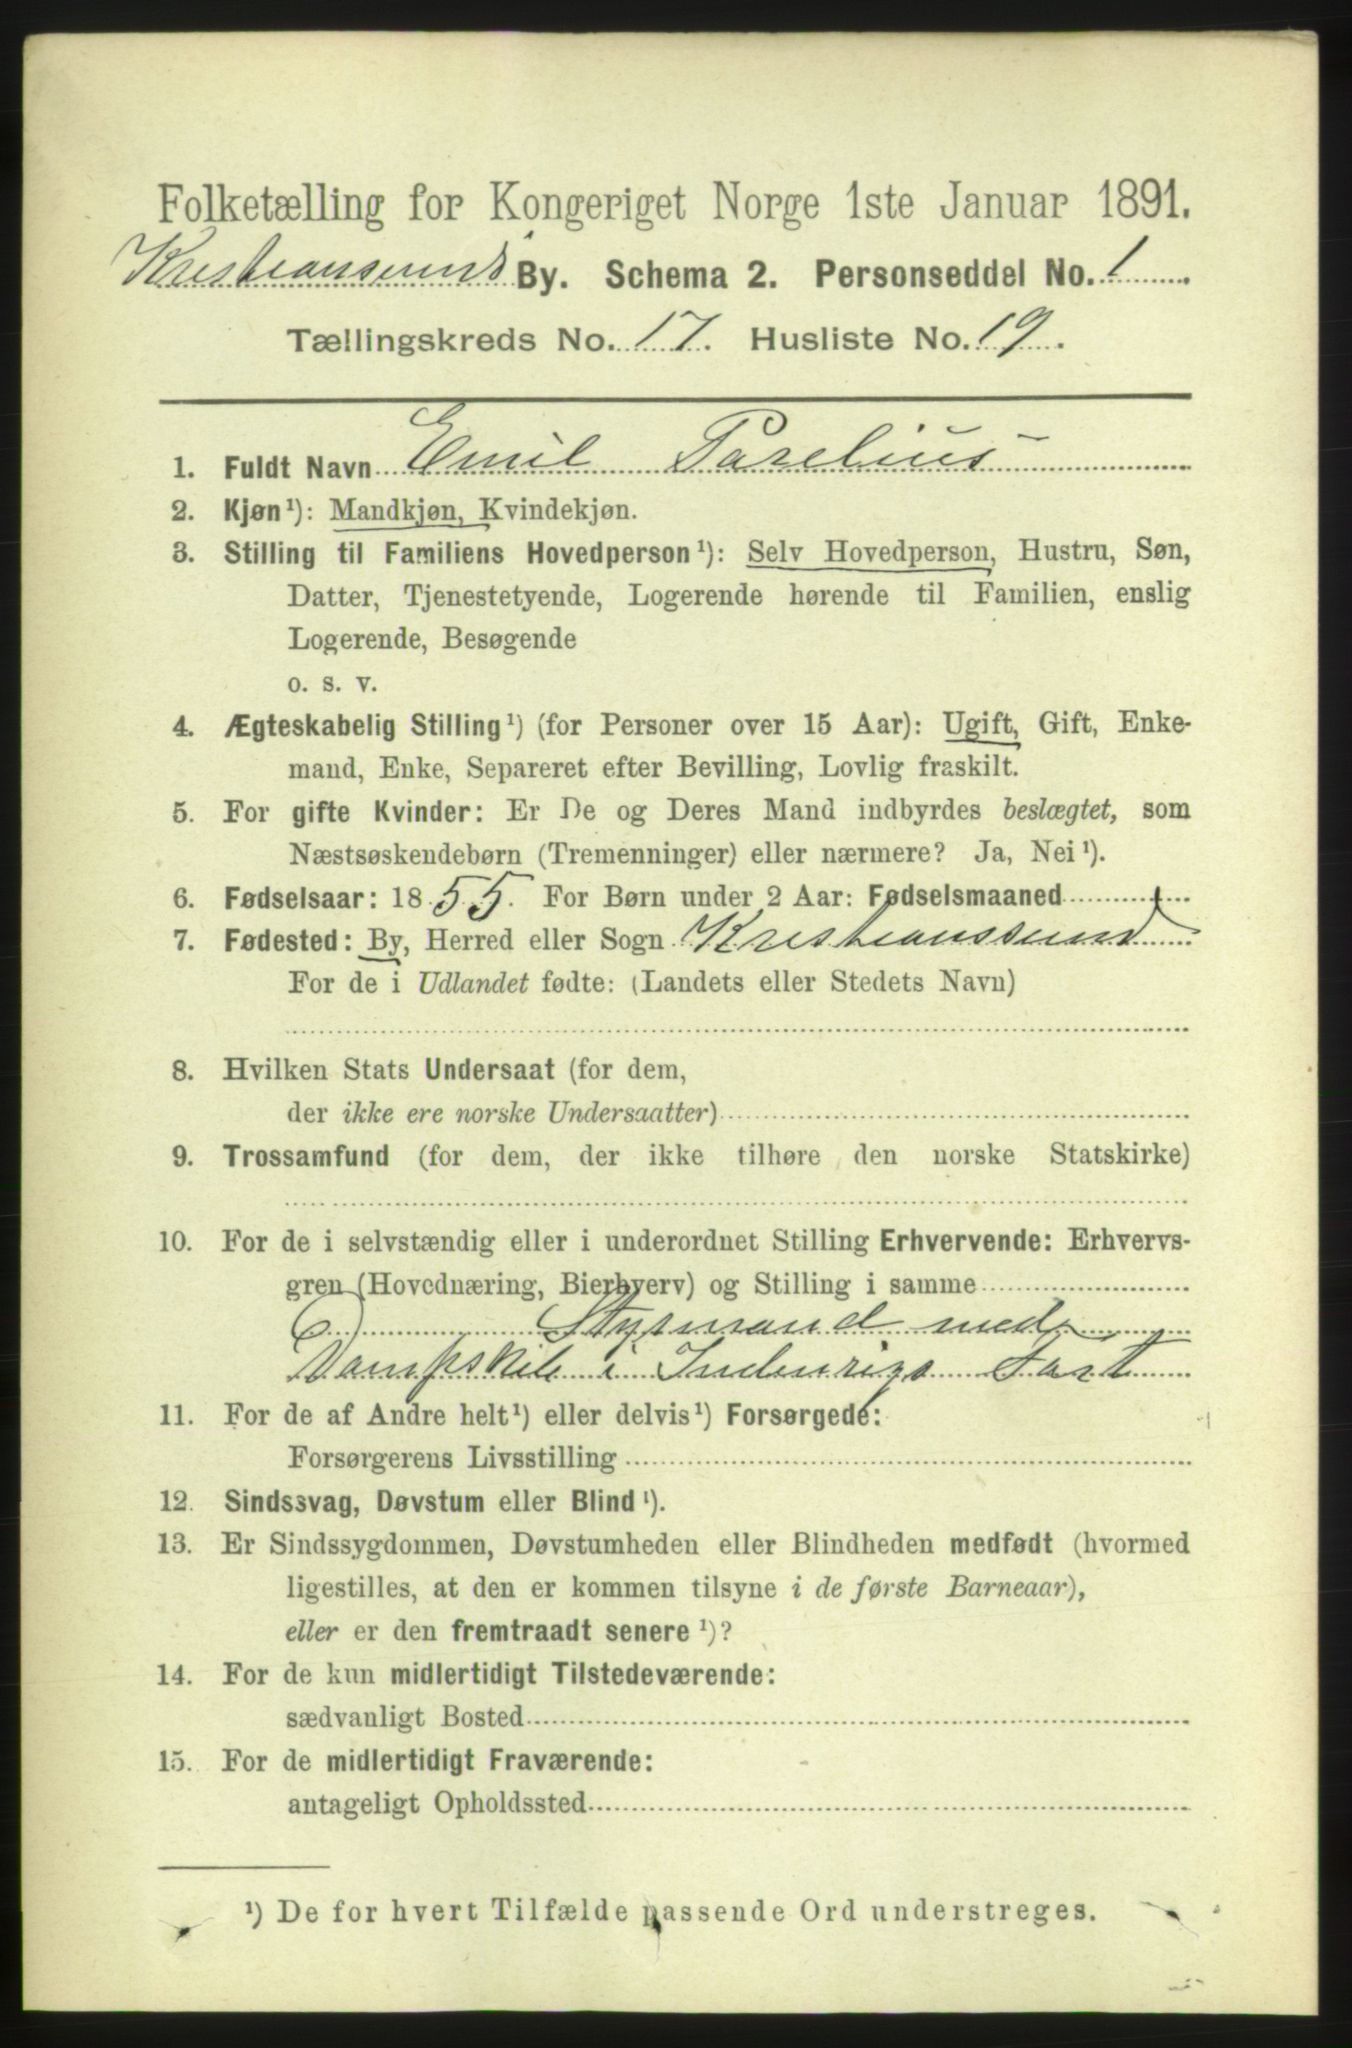 Folketælling for Kongeriget Norge 1ste Januar 1891.
Kristianssund By. Schema 2. Personseddel No. 1
Tællingskreds No. 17. Husliste No. 19.
1. Fuldt Navn Emil Parelius
2. Kjøn¹): Mandkjøn, Kvindekjøn.
3. Stilling til Familiens Hovedperson¹): Selv Hovedperson, Hustru, Søn,
Datter, Tjenestetyende, Logerende hørende til Familien, enslig
Logerende, Besøgende
o. s. v.
4. Ægteskabelig Stilling¹) (for Personer over 15 Aar): Ugift, Gift, Enke-
mand, Enke, Separeret efter Bevilling, Lovlig fraskilt.
5. For gifte Kvinder: Er De og Deres Mand indbyrdes beslægtet, som
Næstsøskendebørn (Tremenninger) eller nærmere? Ja, Nei¹).
6. Fødselsaar: 1855. For Børn under 2 Aar: Fødselsmaaned
7. Fødested: By, Herred eller Sogn Kristianssund
For de i Udlandet fødte: (Landets eller Stedets Navn)
8. Hvilken Stats Undersaat (for dem,
der ikke ere norske Undersaatter)
9. Trossamfund (for dem, der ikke tilhøre den norske Statskirke)
10. For de i selvstændig eller i underordnet Stilling Erhvervende: Erhvervs-
gren (Hovednæring, Bierhverv) og Stilling i samme
Styrmand med
Dampskib i Indenrigs Fart
11. For de af Andre helt¹) eller delvis¹) Forsørgede:
Forsørgerens Livsstilling
12. Sindssvag, Døvstum eller Blind¹).
13. Er Sindssygdommen, Døvstumheden eller Blindheden medfødt (hvormed
ligestilles, at den er kommen tilsyne i de første Barneaar),
eller er den fremtraadt senere¹)?
14. For de kun midlertidigt Tilstedeværende:
sædvanligt Bosted
15. For de midlertidigt Fraværende:
antageligt Opholdssted
¹) De for hvert Tilfælde passende Ord understreges.